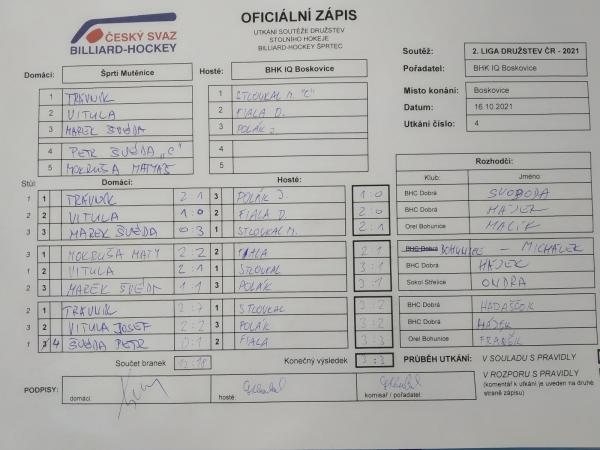 ČESKÝ SVAZ
BILLIARD-HOCKEY
OFICIÁLNÍ ZÁPIS
UTKÁNÍ SOUTĚŽE DRUŽSTEV
STOLNÍHO HOKEJE
BILLIARD-HOCKEY ŠPRTEC
Soutěž: 2. LIGA DRUŽSTEV ČR - 2021
Pořadatel: BHK IQ Boskovice
Místo konání: Boskovice
Datum: 16.10.2021
Utkání číslo: 4
Domácí: Šprti Mutěnice Hosté: BHK IQ Boskovice
1 TRÁVNÍK 1 STLOUKAL M. "C"
2 VITULA 2 FIALA D.
3 MAREK ŠVÉDA 3 POLÁK J.
4 PETR ŠVÉDA "C" 4
5 MOKRUŠA MATYÁŠ 5
Rozhodčí:
Stůl: Domácí: Hosté: Klub: Jméno:
1 1 TRÁVNÍK 2:1 3 POLÁK J. 1:0 BHC Dobrá SVOBODA
2 2 VITULA 1:0 2 FIALA D. 2:0 BHC Dobrá HÁJEK
3 3 MAREK ŠVÉDA 0:3 1 STLOUKAL M. 2:1 Orel Bohunice MALÍK
3 1 MOKRUŠA MATY 2:2 2 FIALA 2:1 BHC Dobrá BOHUNICE - MICHÁLEK
1 2 VITULA 2:1 1 STLOUKAL 3:1 BHC Dobrá HÁJEK
2 3 MAREK ŠVÉDA 1:1 3 POLÁK 3:1 Sokol Střelice ONDRA
2 1 TRÁVNÍK 2:7 1 STLOUKAL 3:2 BHC Dobrá
3 2 VITULA JOSEF 2:2 3 POLÁK 3:2 BHC Dobrá HÁJEK
1 4 ŠVÉDA PETR 0:1 2 FIALA 3:3 Orel Bohunice
Součet branek Konečný výsledek 3:3 PRŮBĚH UTKÁNÍ: V SOULADU S PRAVIDLY
V ROZPORU S PRAVIDLY
(komentář k utkání je uveden na druhé
straně zápisu)
PODPISY: domácí: hosté: komisař / pořadatel: